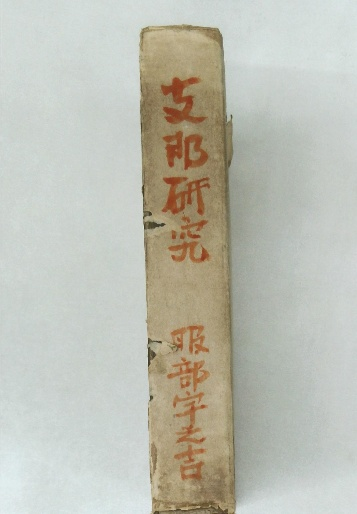 支那研究
服部宇之吉